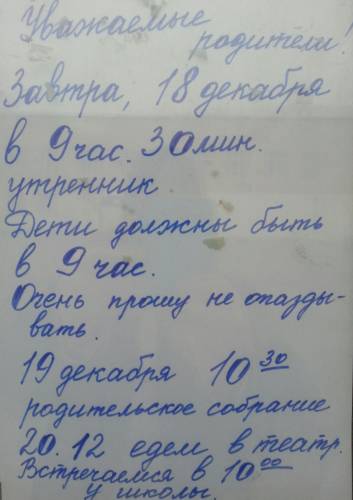 Уважаемые
родители!
Завтра, 18 декабря
в 9 час. 30 мин.
утренник
Дети должны быть
в 9 час.
Очень прошу не опазды-
вать.
19 декабря 10 30
родительское собрание
20.12 едем в театр.
Встречаемся в 10 00
у школы.